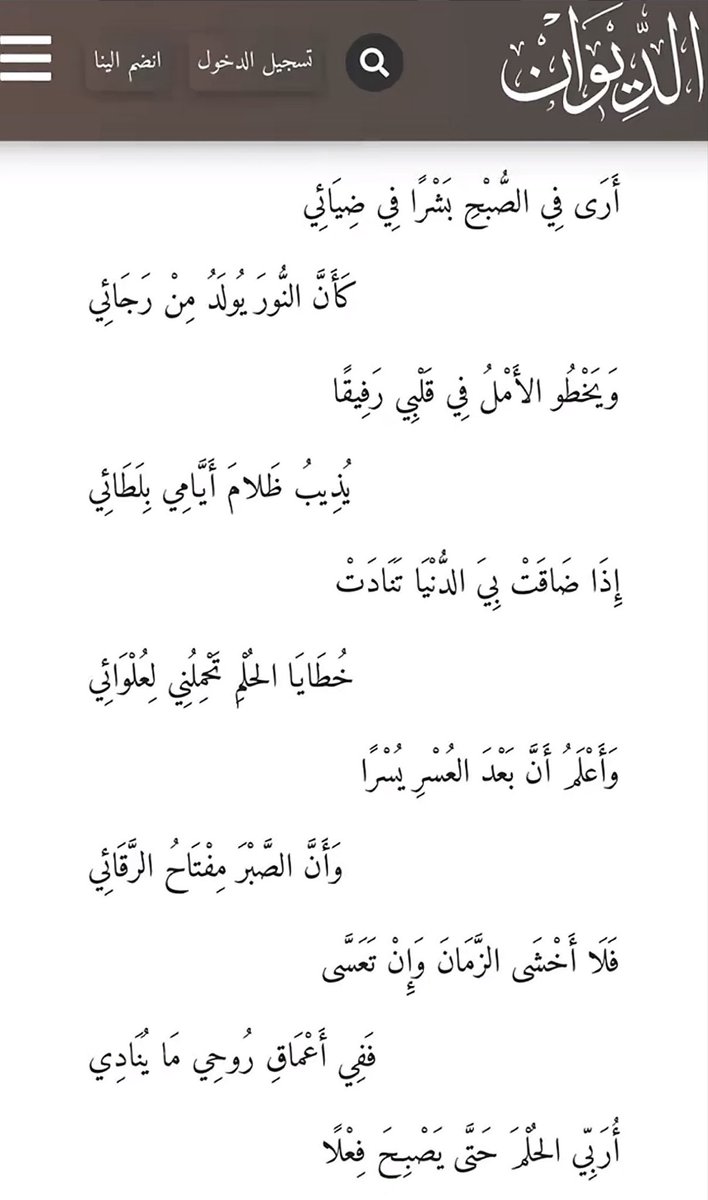 الدِّيْوَانْ
تسجيل الدخول
انضم الينا
أَرَى فِي الصُّبْحِ بَشْرًا فِي ضِيَائِي
كَأَنَّ النُّورَ يُولَدُ مِنْ رَجَائِي
وَيَخْطُو الأَمْلُ فِي قَلْبِي رَفِيقًا
يُذِيبُ ظَلامَ أَيَّامِي بِلَطَائِي
إِذَا ضَاقَتْ بِيَ الدُّنْيَا تَنَادَتْ
خُطَايَا الحُلْمِ تَحْمِلُنِي لِعُلْوَائِي
وَأَعْلَمُ أَنَّ بَعْدَ العُسْرِ يُسْرًا
وَأَنَّ الصَّبْرَ مِفْتَاحُ الرَّقَائِي
فَلَا أَخْشَى الزَّمَانَ وَإِنْ تَعَسَّى
فَفِي أَعْمَاقِ رُوحِي مَا يُنَادِي
أُرَبِّي الحُلْمَ حَتَّى يَصْبِحَ فِعْلًا